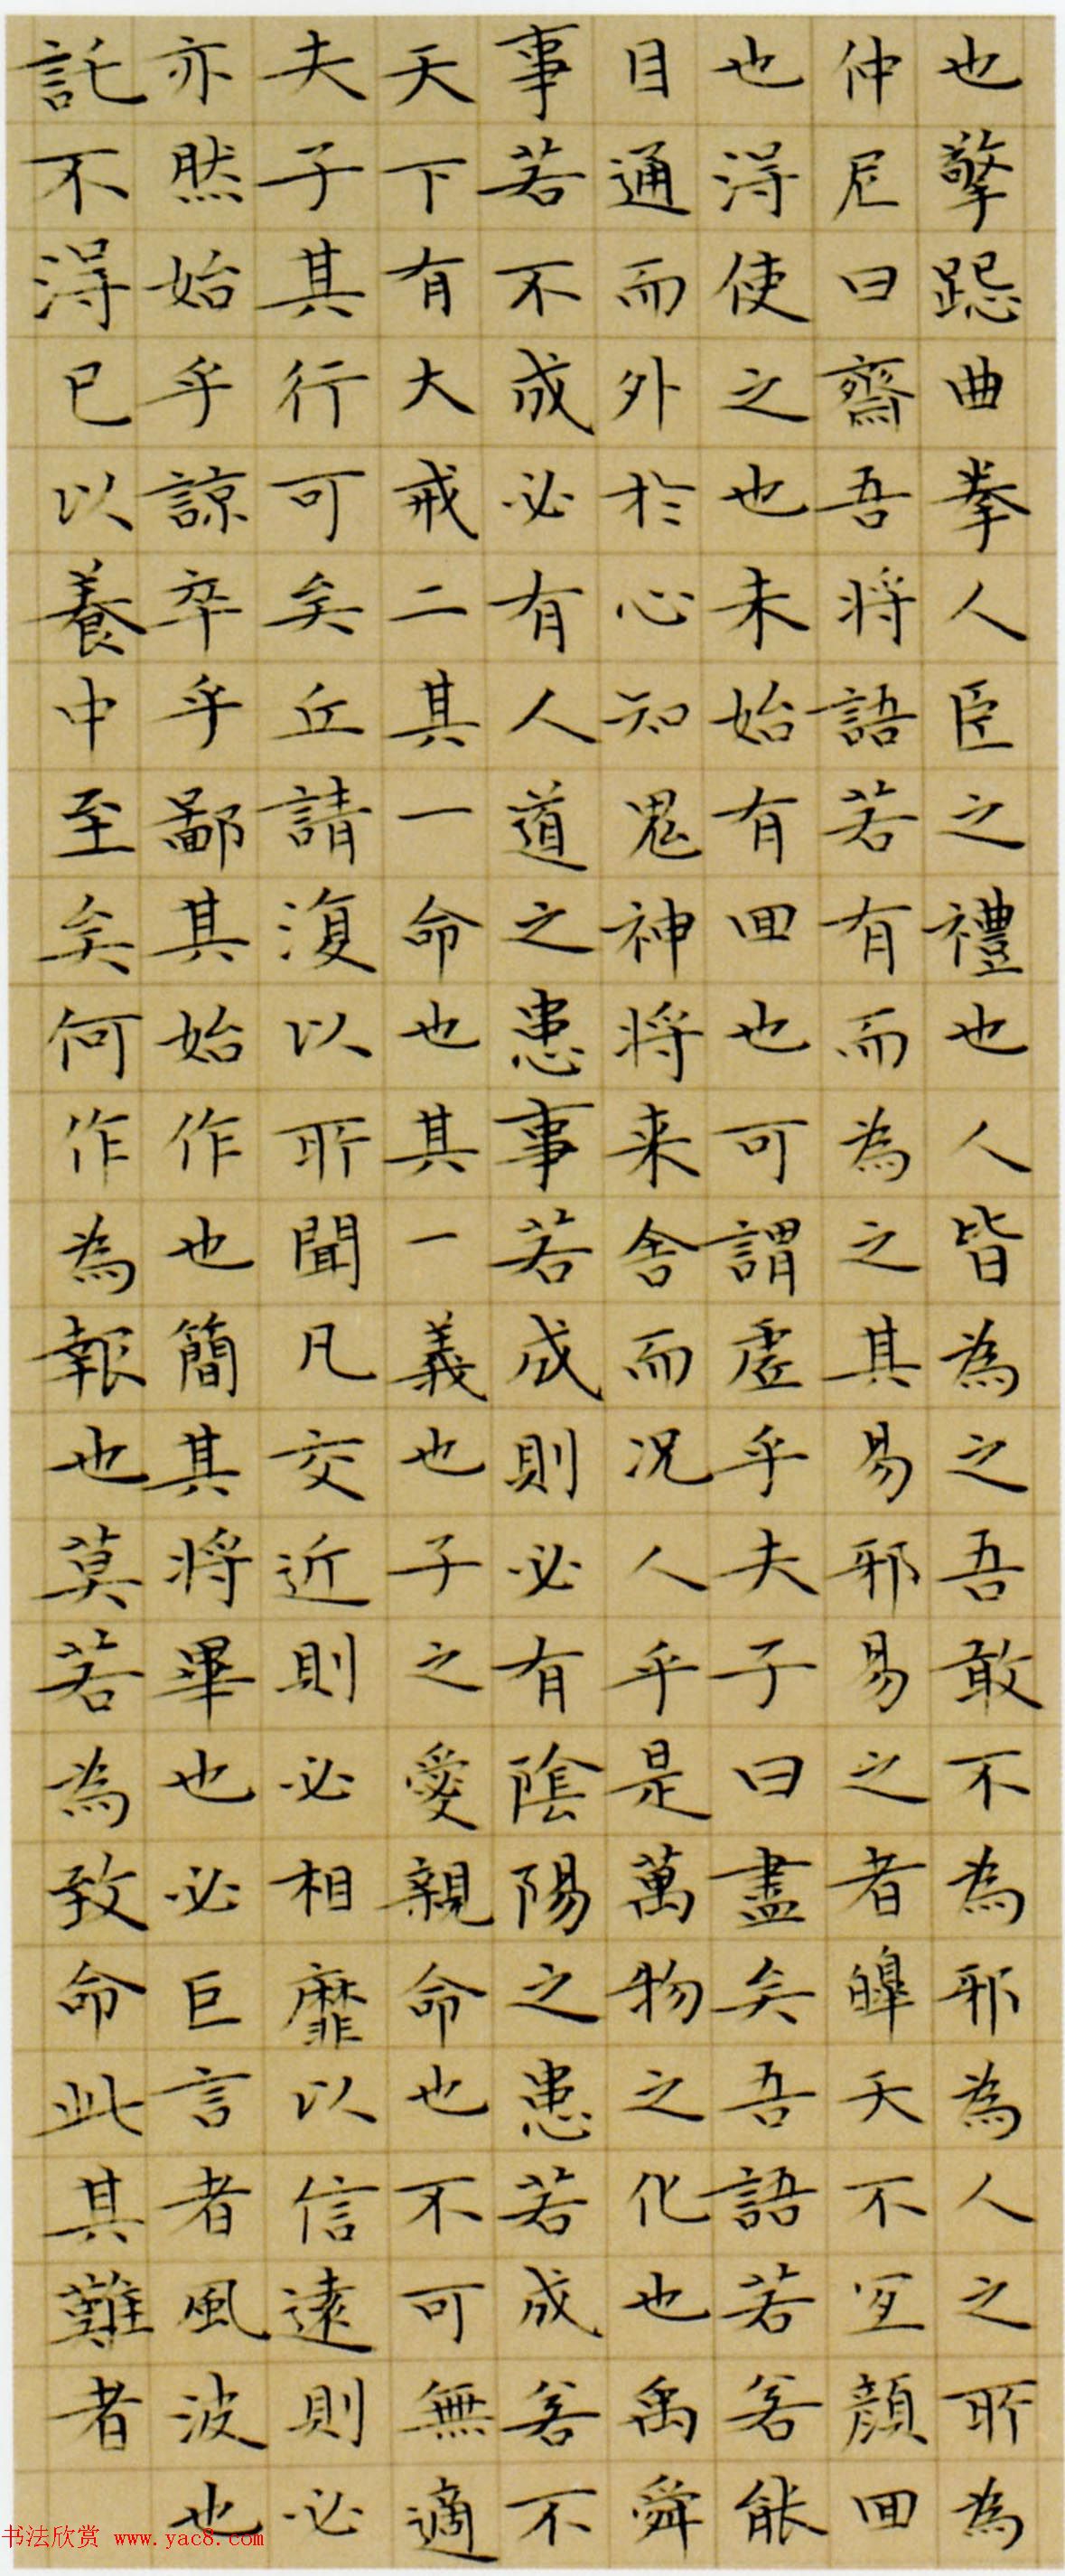 也擎跽曲拳人臣之禮也人皆為之吾敢不為邪為人之所為
仲尼曰齋吾將語若有而為之其易邪易之者皞天不宜顏回
也得使之也未始有回也可謂虛乎夫子曰盡矣吾語若若能
目通而外於心知鬼神將来舍而况人乎是萬物之化也禹舜
事若不成必有人道之患事若成則必有陰陽之患若成若不
天下有大戒二其一命也其一義也子之愛親命也不可無適
夫子其行可矣丘請復以所聞凡交近則必相靡以信遠則必
亦然始乎諒卒乎鄙其始作也簡其將畢也必巨言者風波也
託不得已以養中至矣何作為報也莫若為致命此其難者
书法欣赏 www.yac8.com